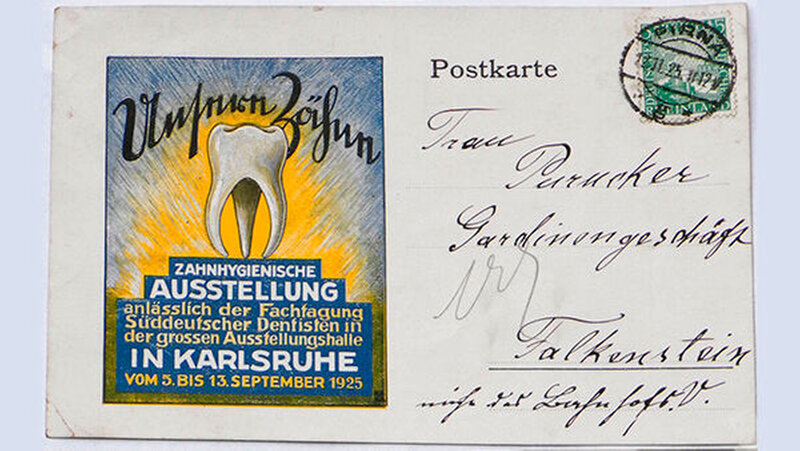 Unsere Zähne
ZAHNHYGIENISCHE
AUSSTELLUNG
anlässlich der Fachtagung
Süddeutscher Dentisten in
der grossen Ausstellungshalle
IN KARLSRUHE
VOM 5. BIS 13. SEPTEMBER 1925
Postkarte
PIRNA
Frau
Purucker
Gardinengeschäft
Falkenstein
des Bahnhofs.